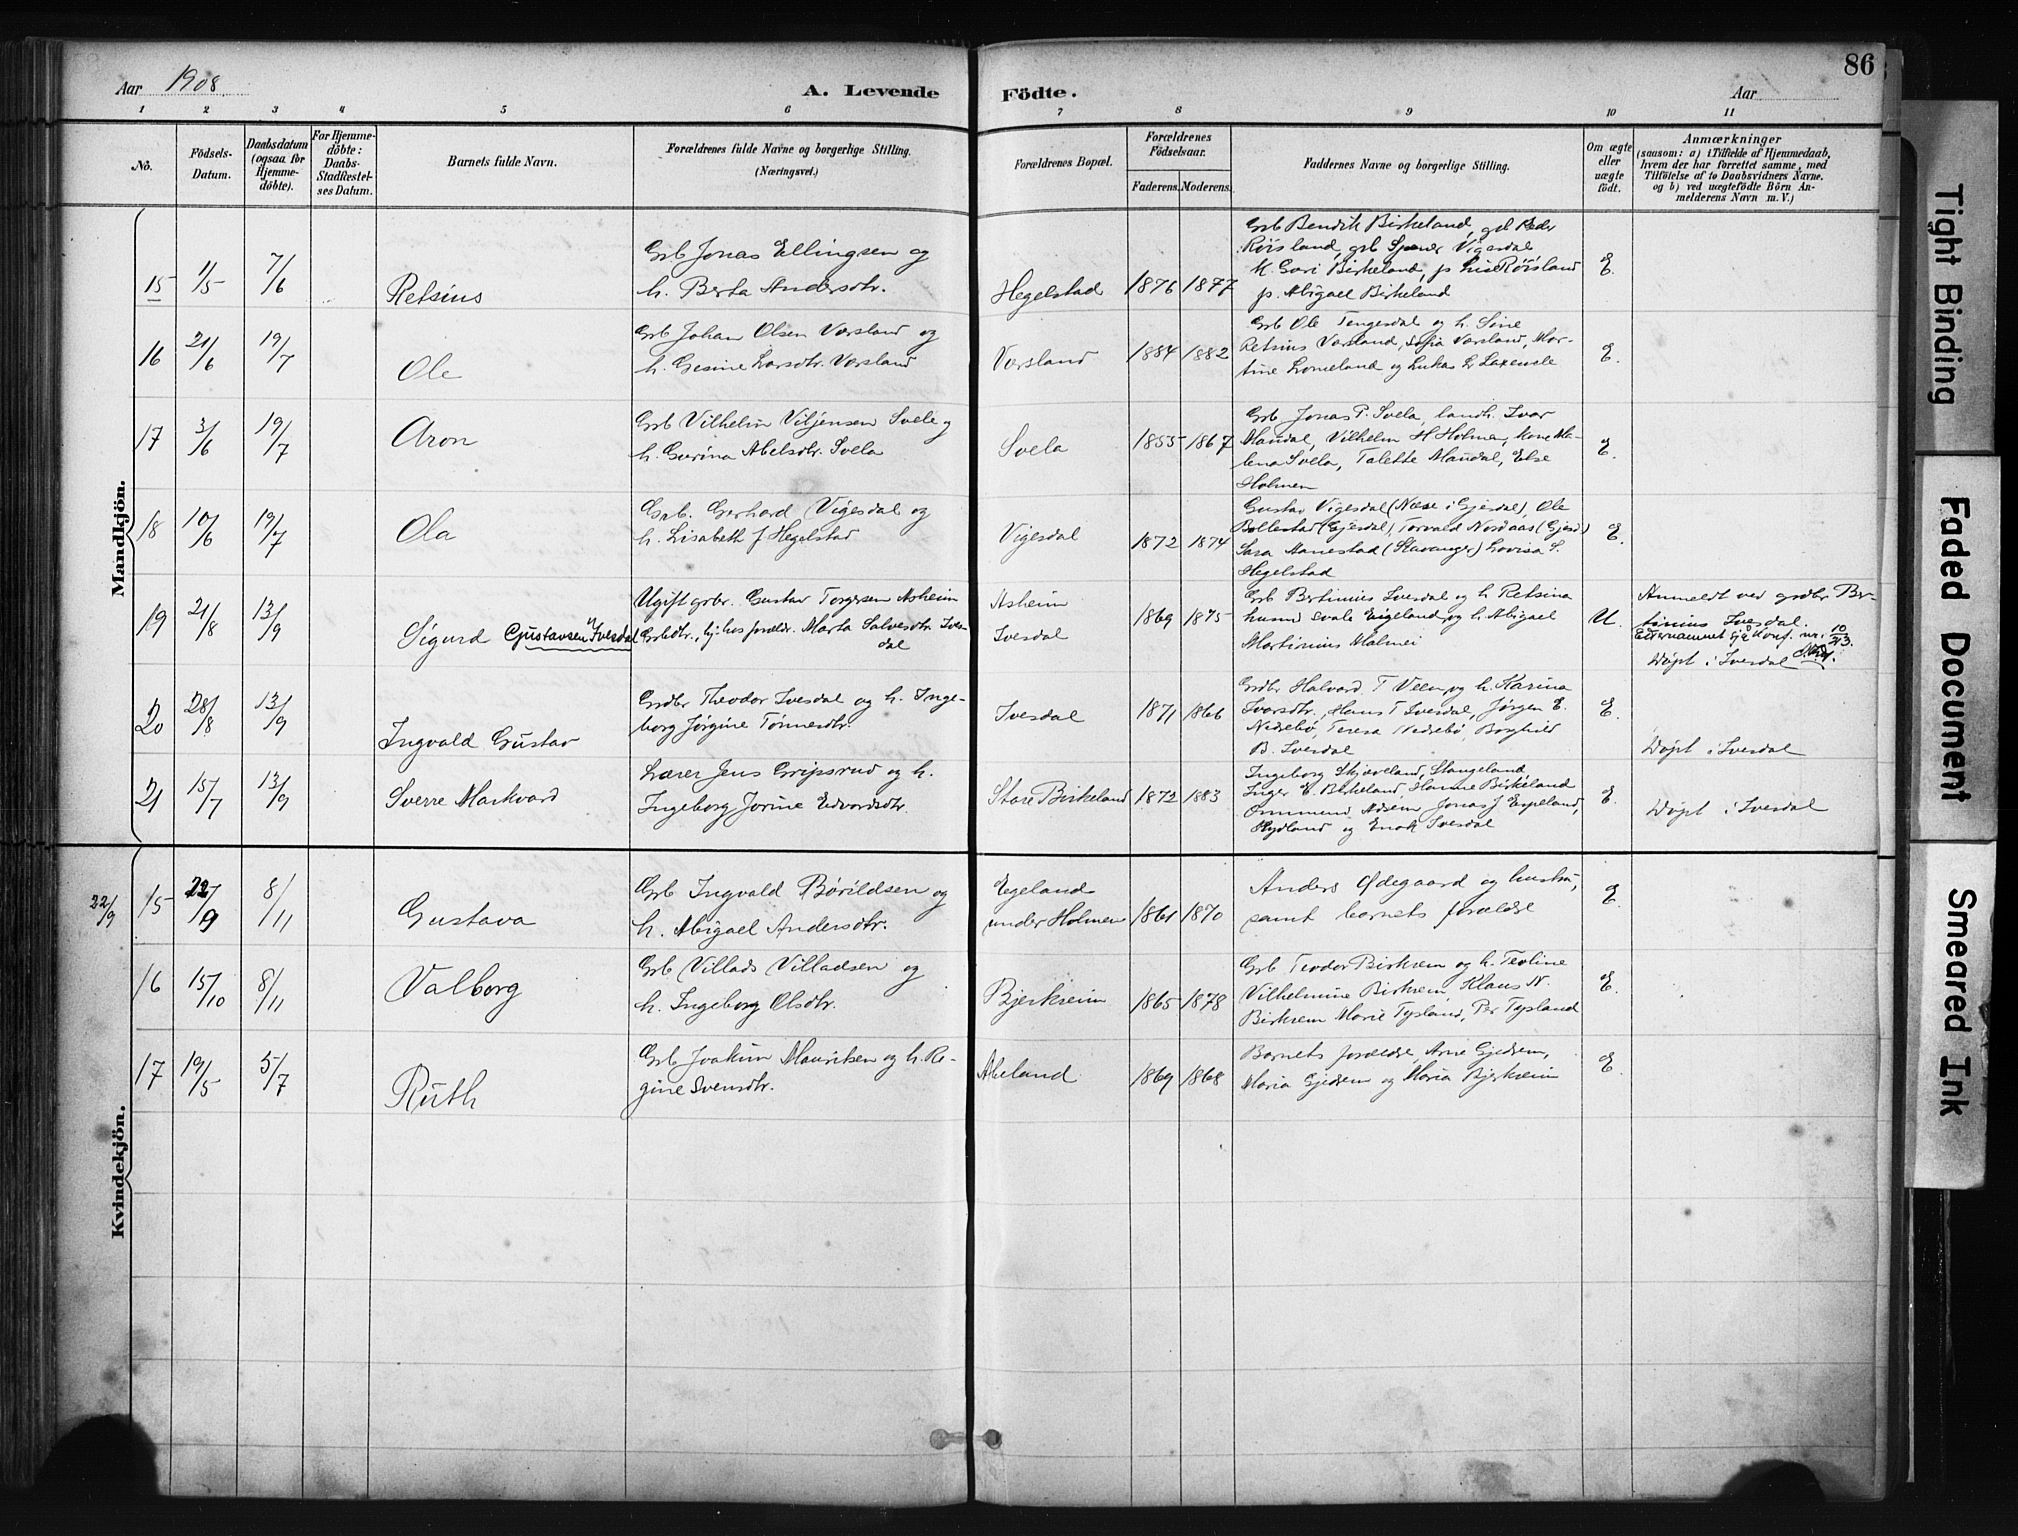 86
Aar 1908.
A. Levende Födte.
Aar
1 2 3 4 5 6 7 8 9 10 11
No.
Födsels-Datum.
Daabsdatum (ogsaa for Hjemme-döbte).
For Hjemme-döbte: Daabs-Stadfæstel-ses Datum.
Barnets fulde Navn.
Forældrenes fulde Navne og borgerlige Stilling.
(Næringsvei.)
Forældrenes Bopæl.
Forældrenes Födselsaar.
Faderens. Moderens.
Faddernes Navne og borgerlige Stilling.
Om ægte eller uægte födt.
Anmærkninger
(saasom: a) i Tilfælde af Hjemmedaab,
hvem der har forrettet samme, med
Tilföielse af to Daabsvidners Navne.
og b) ved uægtefödte Börn An-
melderens Navn m. V.)
Mandkjön.
15 1/5 7/6 Retsius
Grb Jonas Ellingsen og
h. Berta Andersdtr.
Hegelstad 1876 1877
Grb Bendik Birkeland, gd Peder
Röisland, grb Vigesdal
K. Gari Birkeland, p Lise Röisland
p. Abigael Birkeland
E.
16 21/6 19/7 Ole
Grb Johan Olsen Versland og
h. Gesine Larsdtr. Versland
Versland 1884 1882
Grb Ole Tengesdal og h. Sine
Retsius Versland, Sofia Versland, Mar-
tine Lomeland og Lukas
E.
17 3/6 19/7 Aron
Grb Vilhelm Viljensen Svele og
h. Gurina Abelsdtr. Svela
Svela 1855 1867
Grb Jonas P. Svela, landh. Ivar
Maudal, Vilhelm H Holmen, Kone Ma-
lena Svela, Talette Maudal, Else
Holmen
E.
18 10/6 19/7 Ola
Grb. Gerhard Vigesdal og
h. Lisabeth f Hegelstad
Vigesdal 1872 1874
Gustav Vigesdal (Næse i Gjesdal), Ole
Bollestad (Gjesdal), Torvald Nordaas (Gjesd)
Sara Manestad (Stavanger) Lovisa S.
Hegelstad
E.
19 21/8 13/9 Sigurd Gjustavsen Ivesdal
Ugift grbr. Gustav Torgersen Asheim
Grbdtr., hj. hos foræld. Marta Salvesdtr. Ives-
dal
Asheim
Ivesdal
1869 1875
Grb Bertinius Ivesdal og h Retsina
husmd Svale Eigeland og h. Abigael
Martinius Malmei
U.
Anmeldt ved grdbr Ber-
tinius Ivesdal.
Etternamnet Konf. nr. 10/23.
Døpt i Ivesdal
20 28/8 13/9 Ingvald Gustav
Grdbr Theodor Ivesdal og h. Inge-
borg Jørgine Tønnesdtr.
Ivesdal 1871 1866
Grdbr Halvard T Veen og h. Karina
Ivarsdtr., Hans T Ivesdal, Jørgen E.
Nedrebø, Teresa Nedrebø, Borghild
B. Ivesdal
E.
Døpt i Ivesdal
21 15/7 13/9 Sverre Markvard
Lærer Jens Gripsrud og h.
Ingeborg Jorine Edvardsdtr.
Store Birkeland 1872 1883
Ingeborg Skjæveland, Stangeland
Inger E. Birkeland, Hanne Birkeland
Ommund Adsem, Jonas J Espeland,
Hydland og Enok Ivesdal
E.
Døpt i Ivesdal
Kvindekjön.
22/9 15 22/9 8/11 Gustava
Grb Ingvald Börildsen og
h. Abigael Andersdtr.
Egeland
under Holmen
1861 1870
Anders Ødegaard og hustru,
samt barnets forældre
E.
16 15/10 8/11 Valborg
Grb Villads Villadsen og
h. Ingeborg Olsdtr.
Bjerkreim 1865 1878
Grb Teodor Birkrem og h. Teoline
Vilhelmine Birkrem, Klaus N.
Birkrem Marie Tysland, Per Tysland
E.
17 19/5 5/7 Ruth
Grb Joakim Mauritsen og h. Re-
gine Svensdtr.
Apeland 1869 1868
Barnets forældre, Arne Gjedrem,
Maria Gjedrem og Maria Bjerkreim
E.
Tight Binding
Faded Document
Smeared Ink